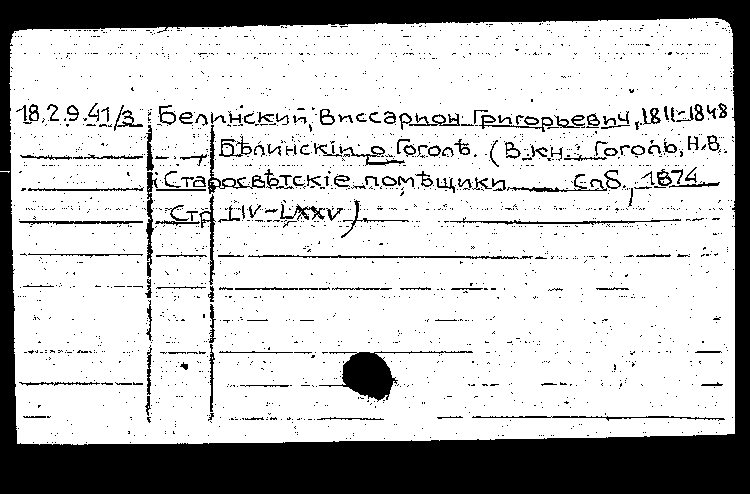 18.2.9.41/3 Белинский, Виссарион Григорьевич, 1811-1848
Бѣлинскiй о Гоголѣ. (В кн.: Гоголь, Н.В.
Старосвѣтскiе помѣщики Спб, 1874.
Стр LIV-LXXV).